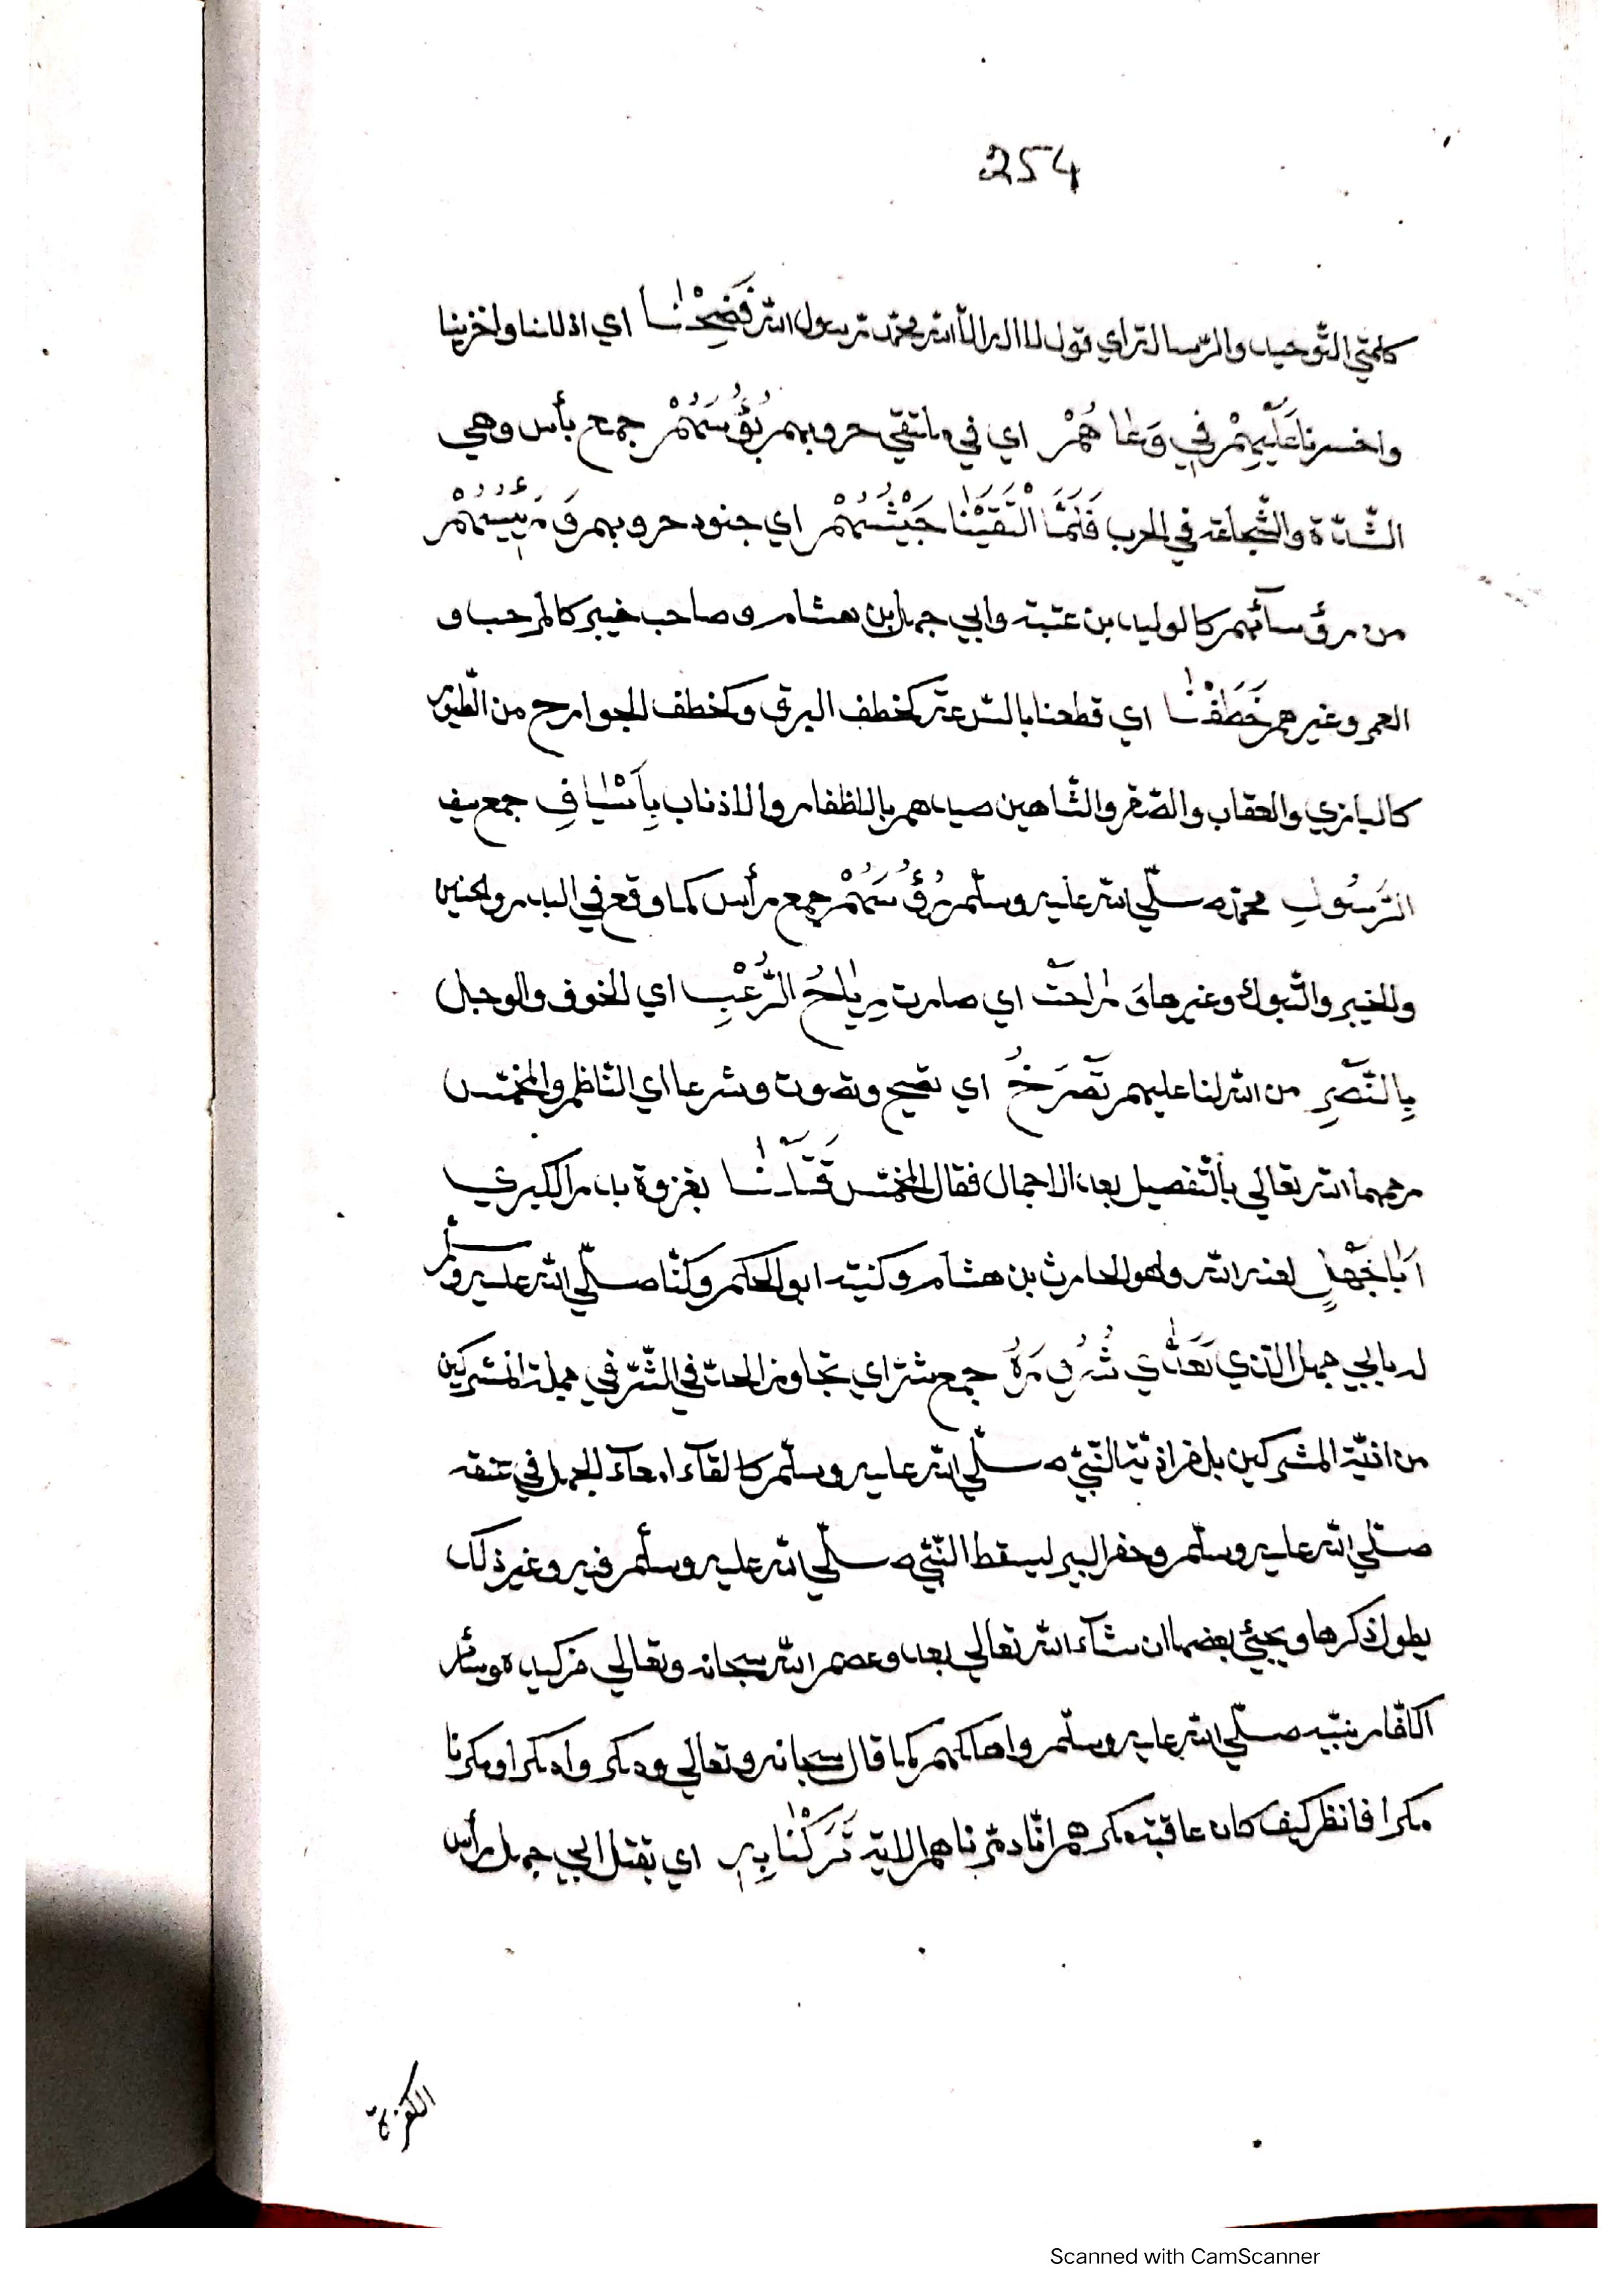 254
كلمتي التّوحيد والرّسالة اي قول لا اله الّا الله محمّد رسول الله فَضَحْنَا اي اذللنا واخزينا
واخسرنا عَلَيْهِمْ فِي وَغَاهُمْ اي في ملتقي حروبهم بُؤُسَهُمْ جمع بأس وهي
الشّدّة والشّجاعة في الحرب فَلَمَّا الْتَقَيْنَا جَيْشُهُمْ اي جنود حروبهم وَرَئِيسُهُمْ
من رؤسآئهم كالوليد بن عتبة وابي جهل بن هشام وصاحب خيبر كالمرحب و
العمر وغيرهم خَطَفْنَا اي قطعنا بالسّرعة كخطف البرق وكخطف الجوارح من الطّيور
كالبازي والعقاب والصّقر والشّاهين صيدهم بالاظفار والاذناب بِأَسْيَافِ جمع سيف
الرَّسُولِ محمّد صلّي الله عليه وسلّم رُؤُسَهُمْ جمع رأس كما وقع في البدر والحنين
والخيبر والتّبوك وغيرها وَرَاحَتْ اي صارت رِيَاحُ الرُّعْبِ اي الخوف والوجل
بِالنَّصْرِ من الله لنا عليهم تَصْرَخُ اي تصيح وتصوت وشرعا اي النّاظم والمخمّس
رحمهما الله تعالي بالتّفصيل بعد الاجمال فقال المخمّس قَتَلْنَا بغزوة بدر الكبري
أَبَا جَهْلٍ لعنه الله وهو الحارث بن هشام وكنيته ابو الحكم وكنّا صلّي الله عليه وسلّم
له بابي جهل الّذي تَعَدَّي شُرُورَهُ جمع شرّ اي تجاوز الحدّ في الشّرّ في جملة المشركين
من اذيّة المشركين بل فر اذيّة النّبيّ صلّي الله عليه وسلّم كالقآء امعآء الجمل في عنقه
صلّي الله عليه وسلّم وحفر البير ليسقط النّبيّ صلّي الله عليه وسلّم فيه وغير ذلك
يطول ذكرها ويجيئ بعضها ان شآء الله تعالي بعد وعصم الله سبحانه وتعالي من كيده وسائر
الكفّار نبيّه صلّي الله عليه وسلّم واهلكهم كما قال سبحانه وتعالي ومكروا مكرا ومكرنا
مكرا فانظر كيف كان عاقبة مكرهم انّا دمّرناهم الاية تَرَكْنَا بِهِ اي بقتل ابي جهل رأس
الكفرة
Scanned with CamScanner